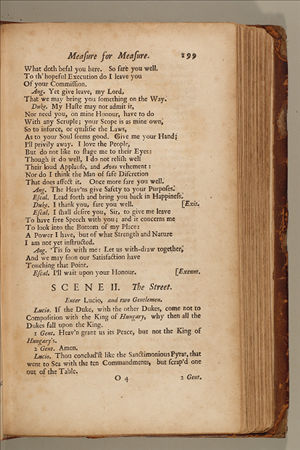 Measure for Measure. 199
What doth befal you here. So fare you well.
To th' hopeful Execution do I leave you
Of your Commission.
Ang. Yet give leave, my Lord,
That we may bring you something on the Way.
Duke. My Haste may not admit it,
Nor need you, on mine Honour, have to do
With any Scruple; your Scope is as mine own,
So to inforce, or qualifie the Laws,
As to your Soul seems good. Give me your Hand;
I'll privily away. I love the People,
But do not like to stage me to their Eyes:
Though it do well, I do not relish well
Their loud Applause, and Aves vehement:
Nor do I think the Man of safe Discretion
That does affect it. Once more fare you well.
Ang. The Heav'ns give Safety to your Purposes.
Escal. Lead forth and bring you back in Happiness.
Duke. I think you, fare you well. [Exit.
Escal. I shall desire you, Sir, to give me leave
To have free Speech with you; and it concerns me
To look into the Bottom of my Place:
A Power I have, but of what Strength and Nature
I am not yet instructed.
Ang. 'Tis so with me: Let us with-draw together,
And we may soon our Satisfaction have
Touching that Point.
Escal. I'll wait upon your Honour. [Exeunt.
SCENE II. The Street.
Enter Lucio, and two Gentlemen.
Lucio. If the Duke, with the other Dukes, come not to
Composition with the King of Hungary, why then all the
Dukes fall upon the King.
1 Gent. Heav'n grant us its Peace, but not the King of
Hungary's.
2 Gent. Amen.
Lucio. Thou conclud'st like the Sanctimonious Pyrat, that
went to Sea with the ten Commandments, but scrap'd one
out of the Table.
O 4 2 Gent.